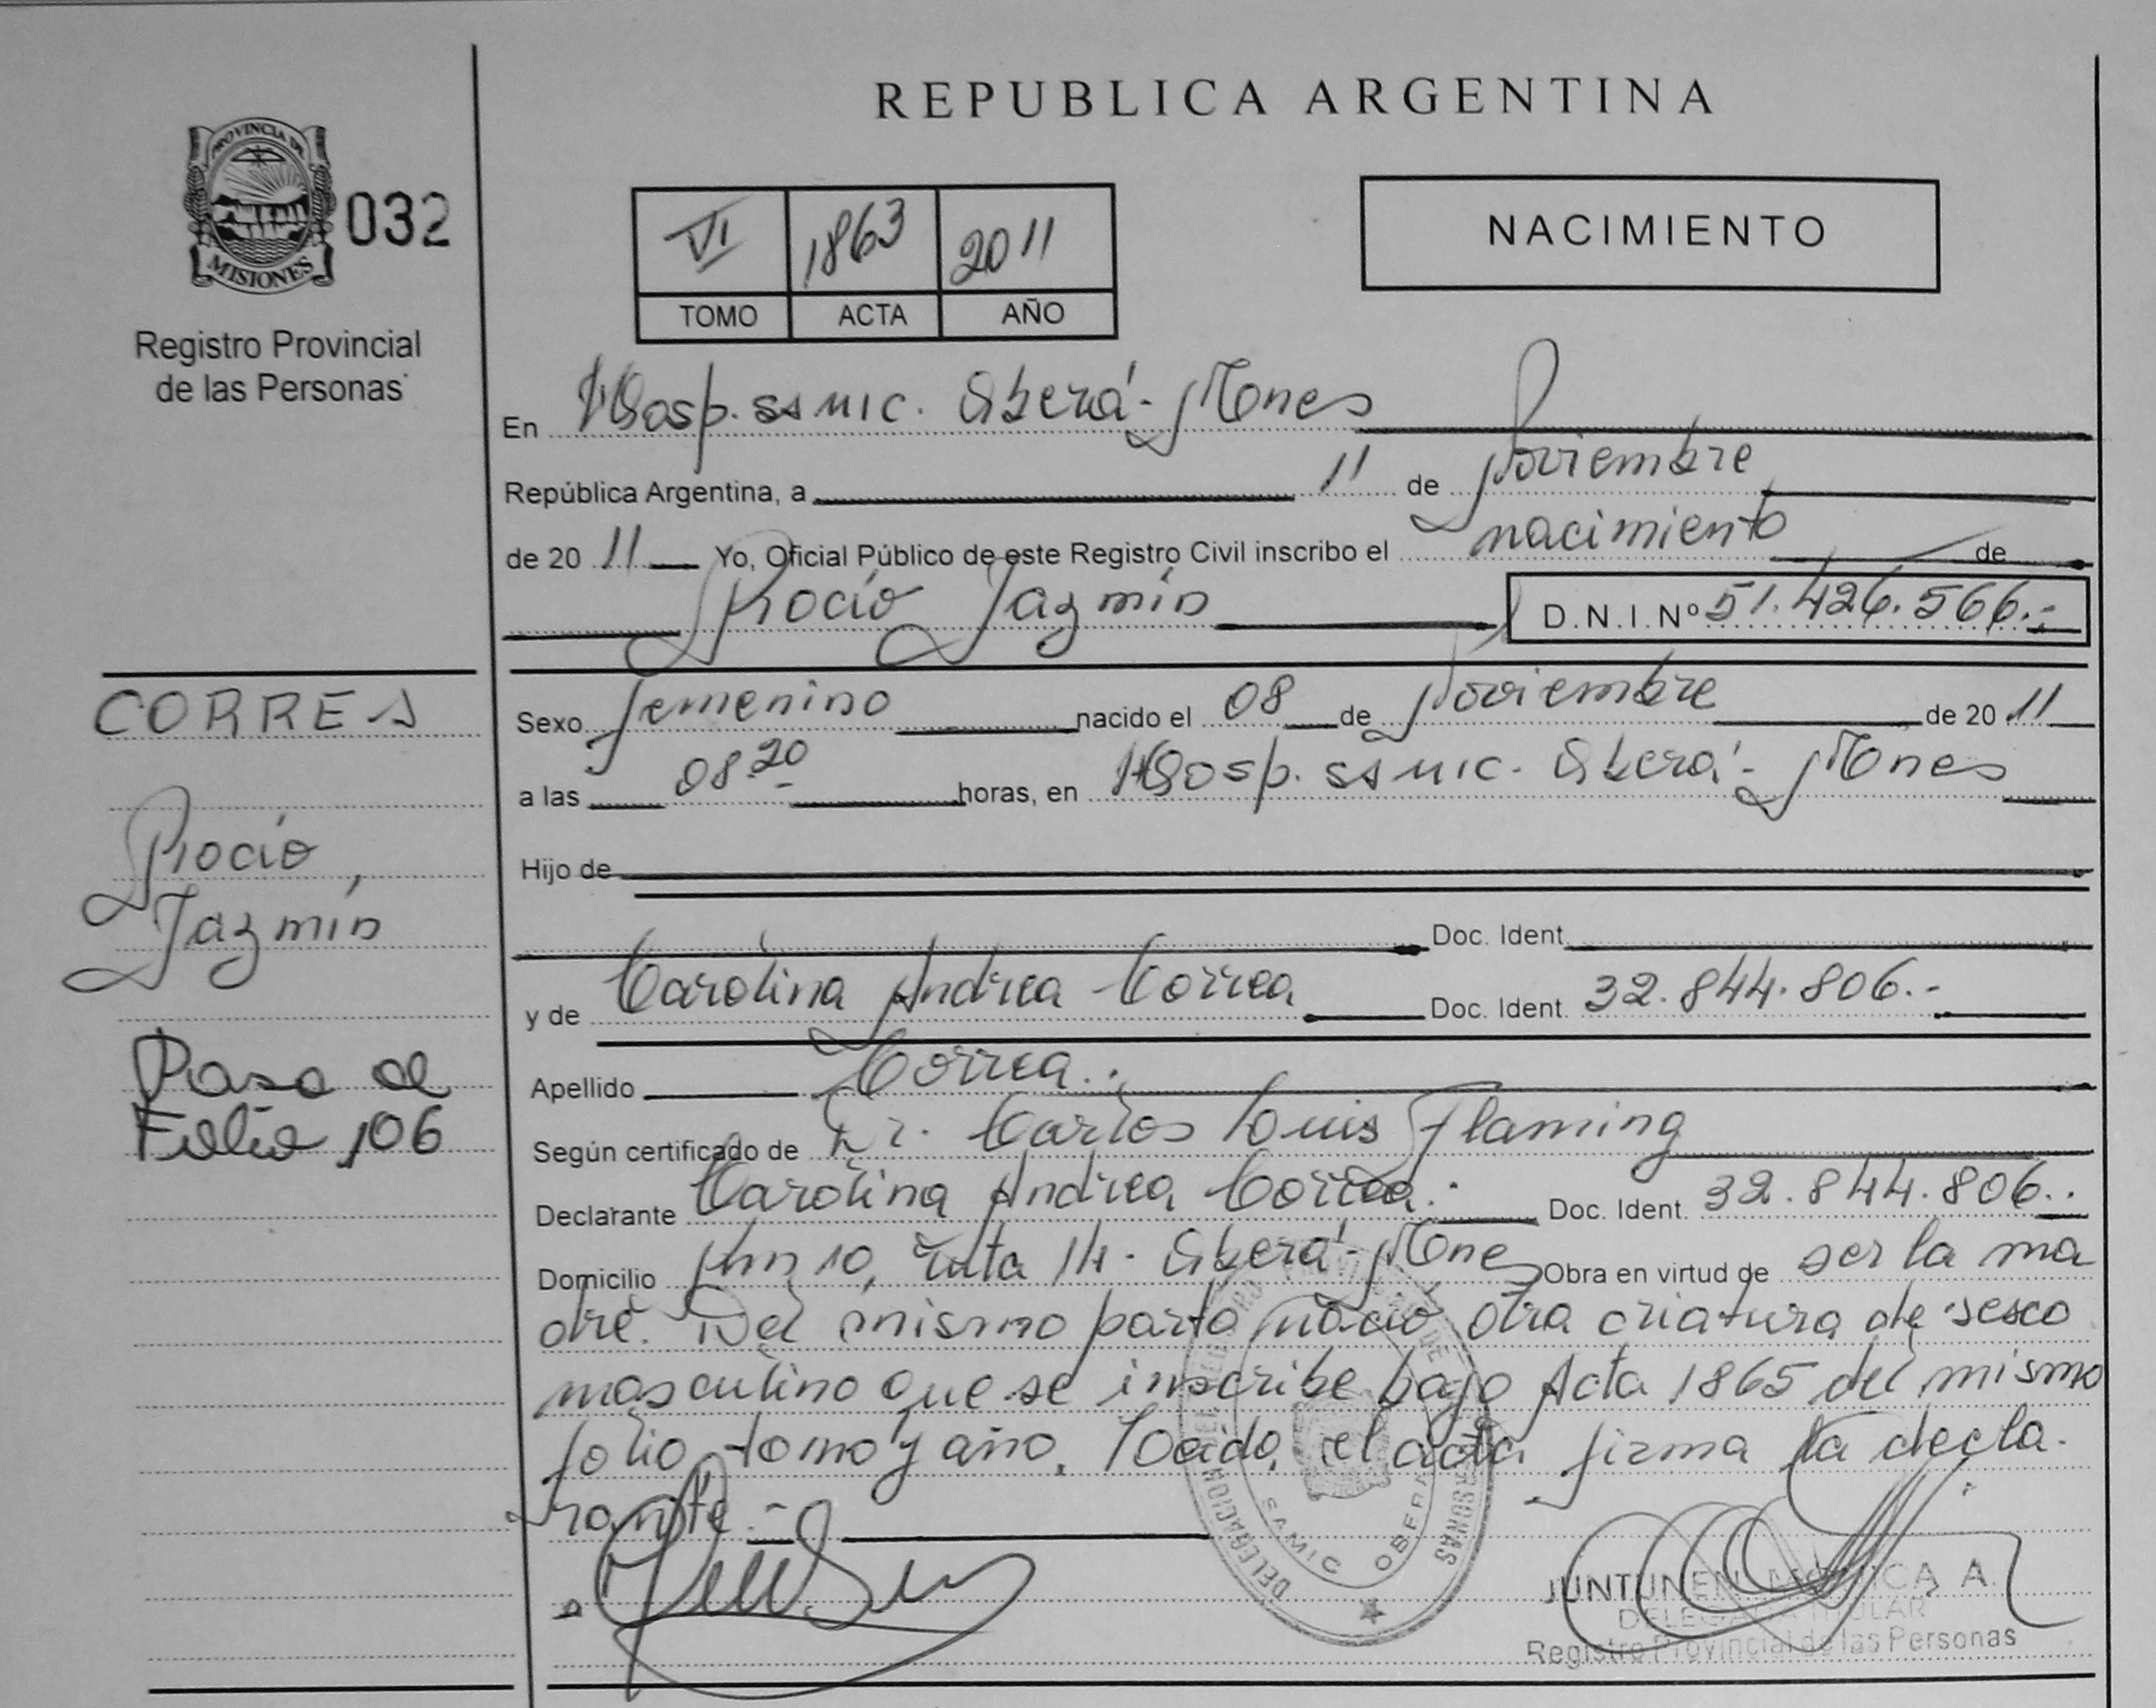 REPUBLICA ARGENTINA
PROVINCIA DE
MISIONES
032
Registro Provincial
de las Personas
VI 1863 2011
TOMO ACTA AÑO
NACIMIENTO
En Hosp. SAMIC. Oberá - Mnes
República Argentina, a 11 de Noviembre
de 20 11 Yo, Oficial Público de este Registro Civil inscribo el nacimiento de
Rocío Jazmín D.N.I.Nº 51.426.566.-
CORREA
Rocío,
Jazmín
Pasa al
Folio 106
Sexo femenino nacido el 08 de Noviembre de 20 11
a las 08.20 horas, en Hosp. SAMIC. Oberá - Mnes
Hijo de
Doc. Ident.
y de Carolina Andrea Correa Doc. Ident. 32.844.806.-
Apellido Correa.
Según certificado de Dr. Carlos Luis Flaming
Declarante Carolina Andrea Correa. Doc. Ident. 32.844.806.
Domicilio Km 10, ruta 14 - Oberá - Mnes Obra en virtud de ser la ma
dre. Del mismo parto nació otra criatura de sexo
masculino que se inscribe bajo Acta 1865 del mismo
folio, tomo y año. Leída, el acta firma la decla-
rante.-
DELEGACION
SAMIC OBERA
JUNTUNEN MONICA A.
DELEGADA TITULAR
Registro Provincial de las Personas